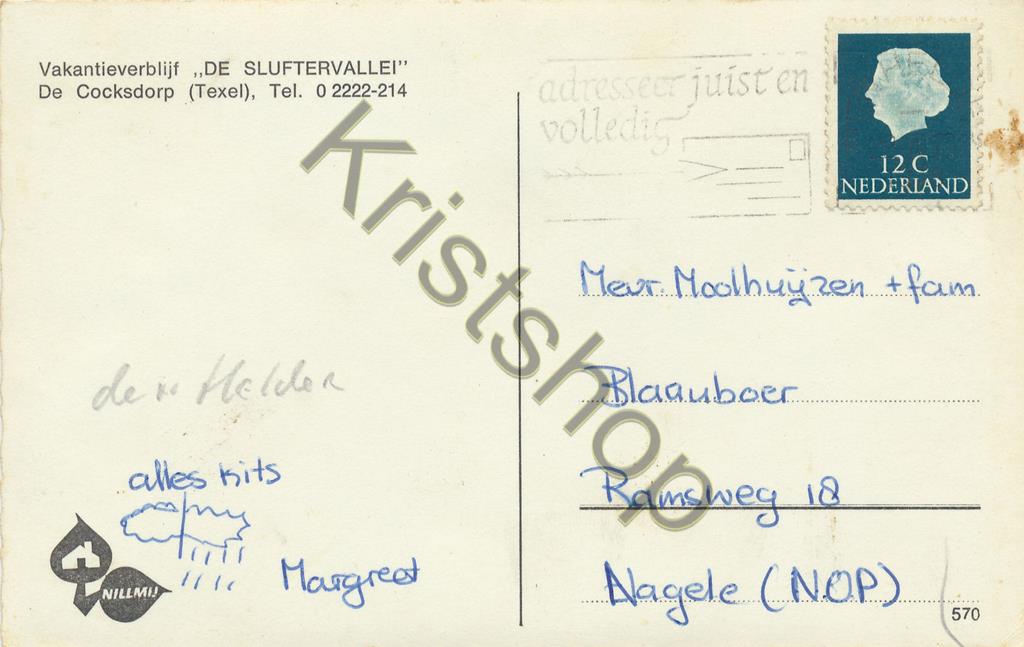 Vakantieverblijf ,,DE SLUFTERVALLEI"
De Cocksdorp (Texel), Tel. 0 2222-214
adresseer juist en
volledig
12 C
NEDERLAND
Kristshop
Mevr. Moolhuijzen + fam
Blaauboer
Ramsweg 18
Nagele (NOP)
den Helder
alles kits
Margreet
NILLMIJ
570